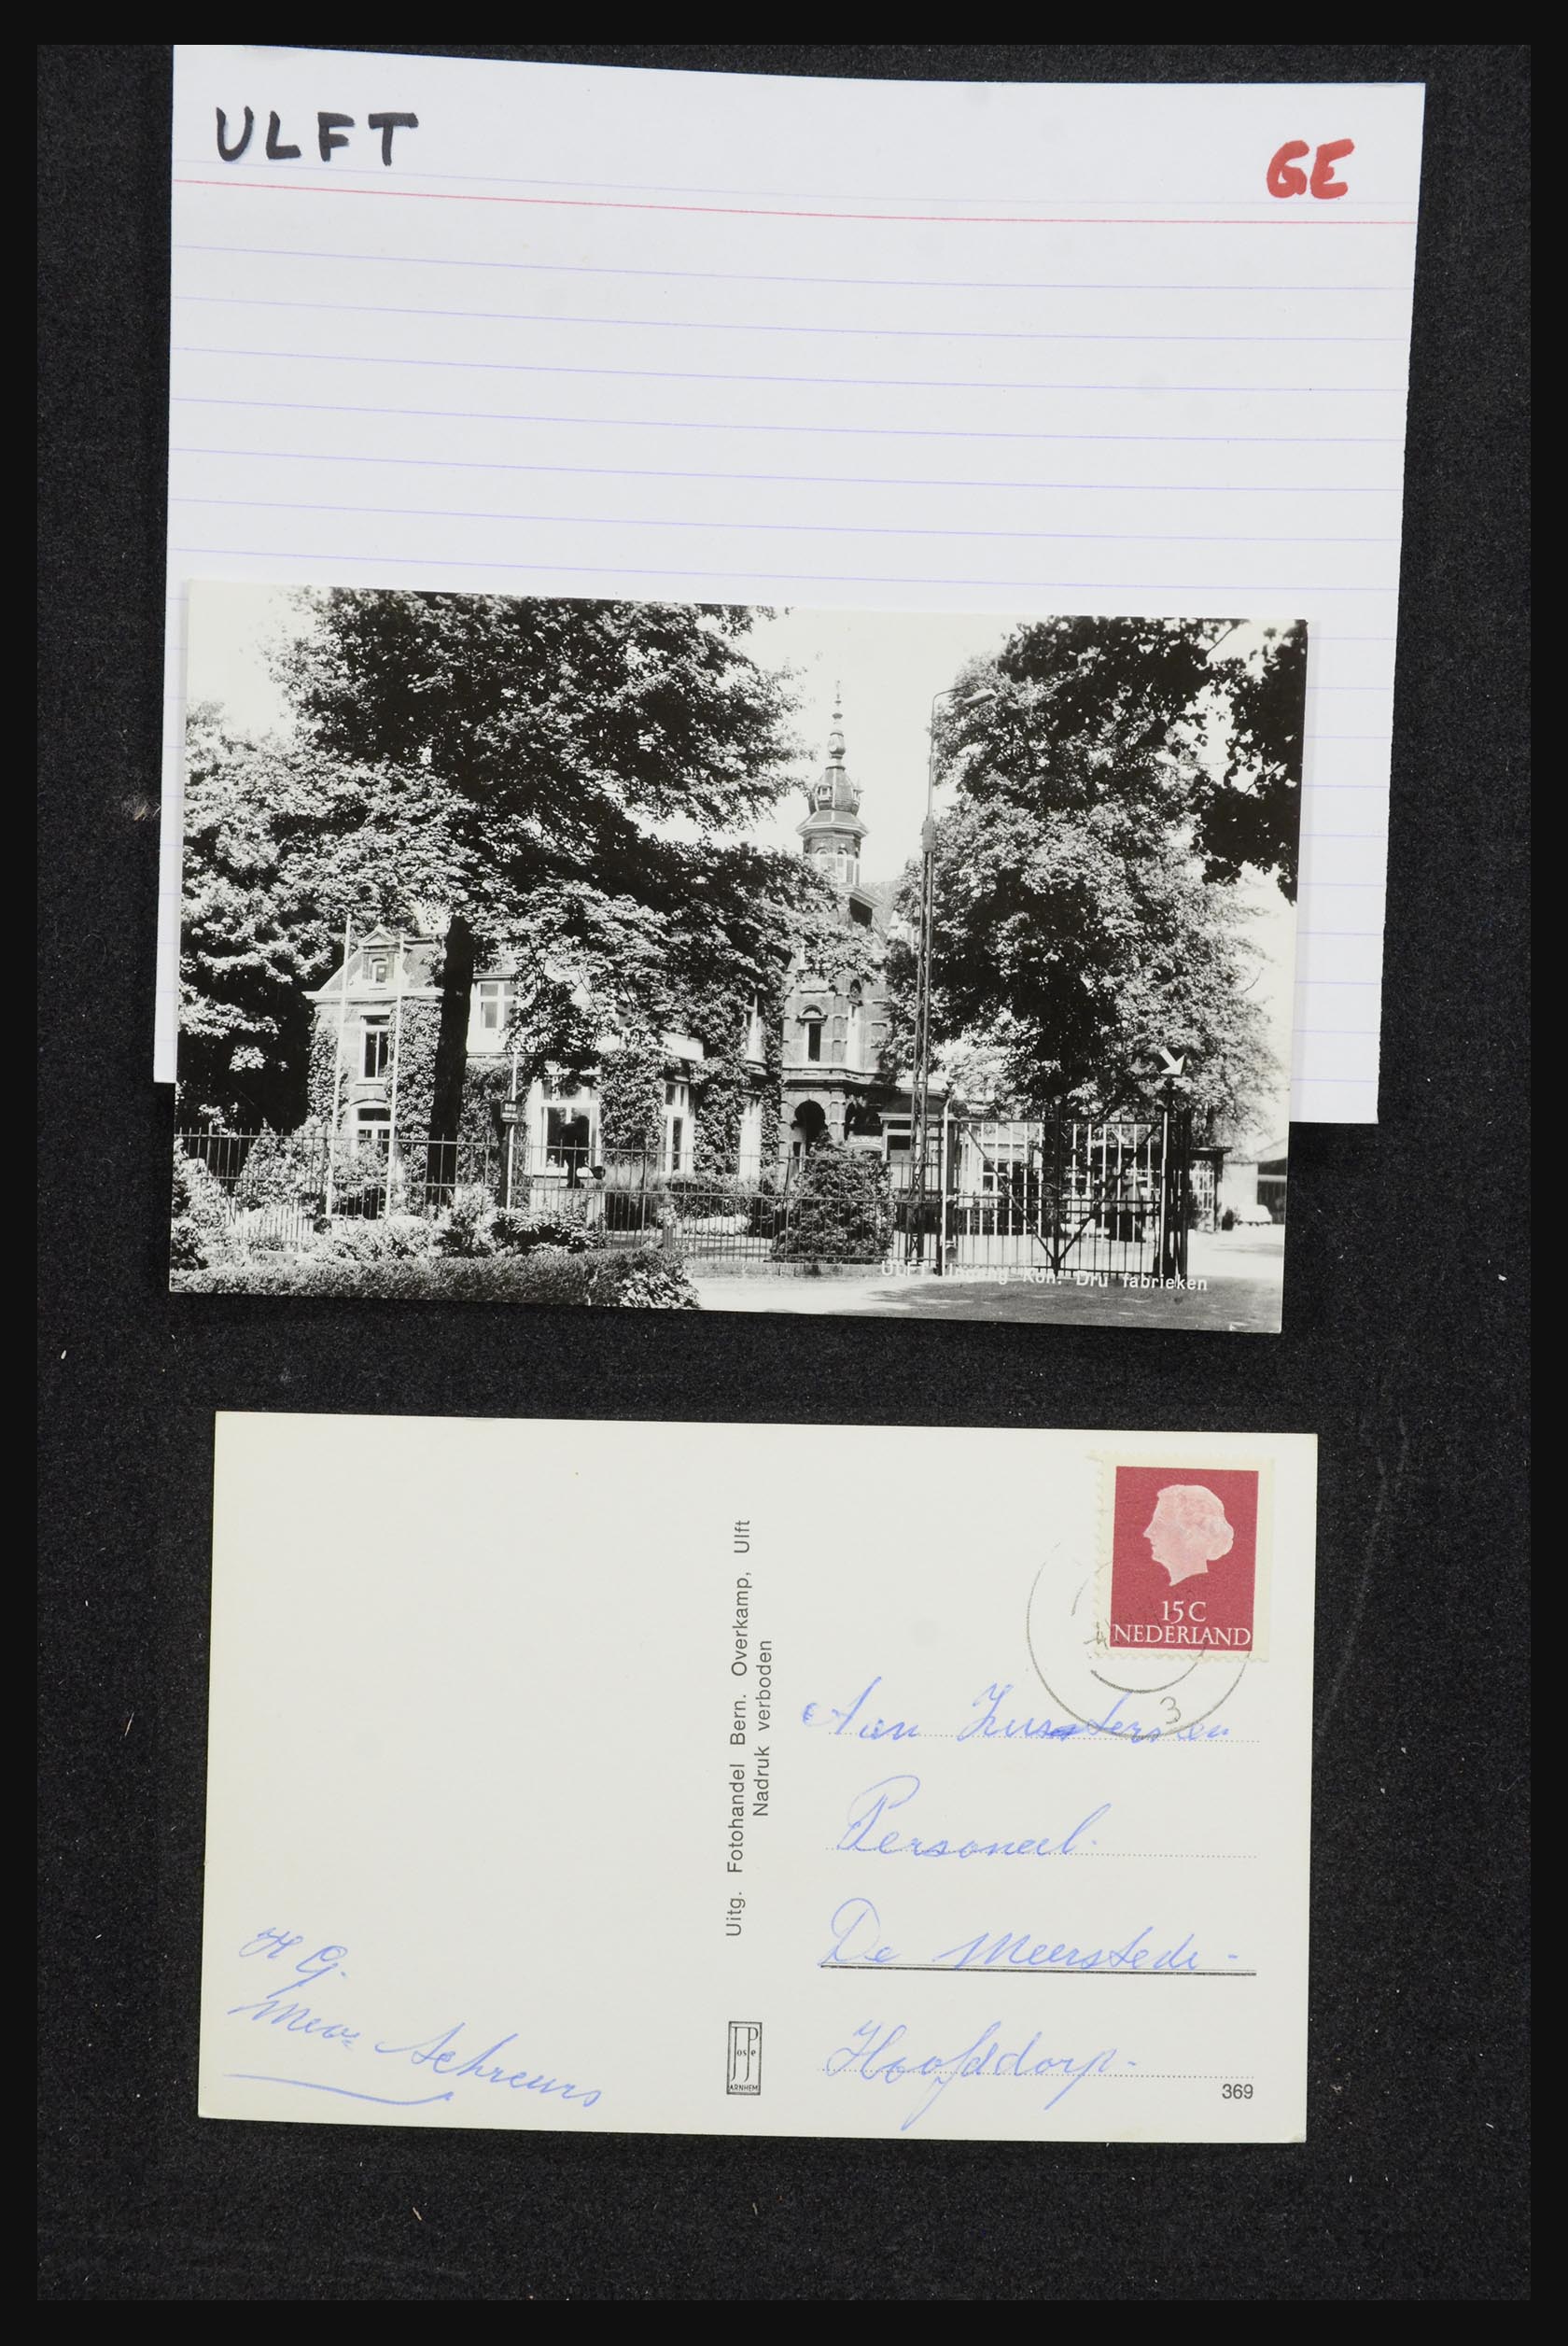 ULFT
GE
ULFT Ingang Kon. Dru fabrieken
15 C
NEDERLAND
3
Uitg. Fotohandel Bern. Overkamp, Ulft
Nadruk verboden
Aan
Personeel.
De Meerstede -
Hoofddorp -
H G.
Mevr Schreurs
JosPe
ARNHEM
369